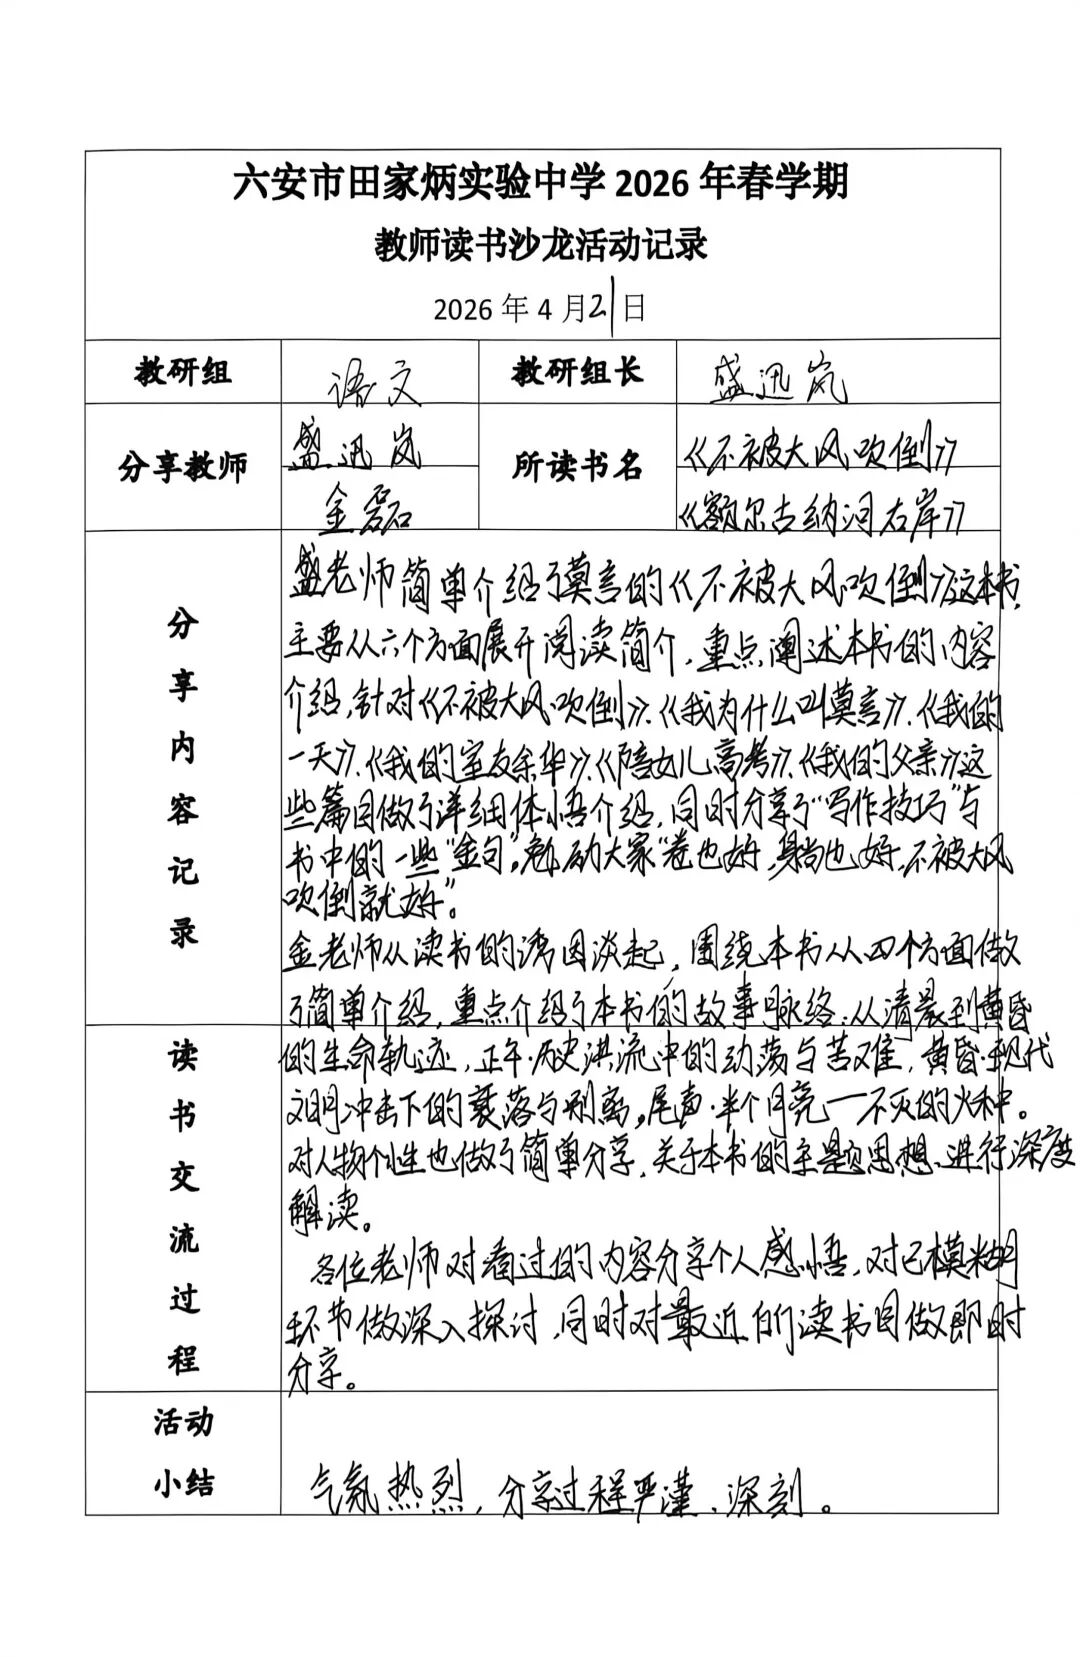 六安市田家炳实验中学2026年春学期
教师读书沙龙活动记录
2026年4月21日
教研组 语文 教研组长 盛迅岚
分享教师 盛迅岚 金磊 所读书名 《不被大风吹倒》 《额尔古纳河右岸》
分享内容记录
盛老师简单介绍了莫言的《不被大风吹倒》这本书,
主要从六个方面展开阅读简介,重点阐述本书的内容
介绍,针对《不被大风吹倒》、《我为什么叫莫言》、《我的
一天》、《我的室友余华》、《陪女儿高考》、《我的父亲》这
些篇目做了详细体悟介绍,同时分享了“写作技巧”与
书中的一些“金句”。勉励大家“卷也好,躺也好,不被大风
吹倒就好”。
金老师从读书的诱因谈起,围绕本书从四个方面做
了简单介绍,重点介绍了本书的故事脉络:从清晨到黄昏
读书交流过程
的生命轨迹,正午·历史洪流中的动荡与苦难,黄昏·现代
文明冲击下的衰落与别离。尾声·半个月亮—不灭的火种。
对人物个性也做了简单分享,关于本书的主题思想、进行深度
解读。
各位老师对看过的内容分享个人感悟,对已模糊
环节做深入探讨,同时对最近的所读书目做即时
分享。
活动小结
气氛热烈,分享过程严谨、深刻。